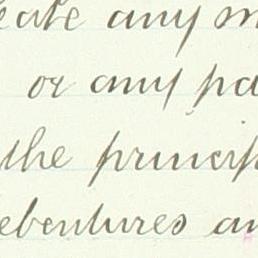 eate any m
or any pa
the princip
ebentures an